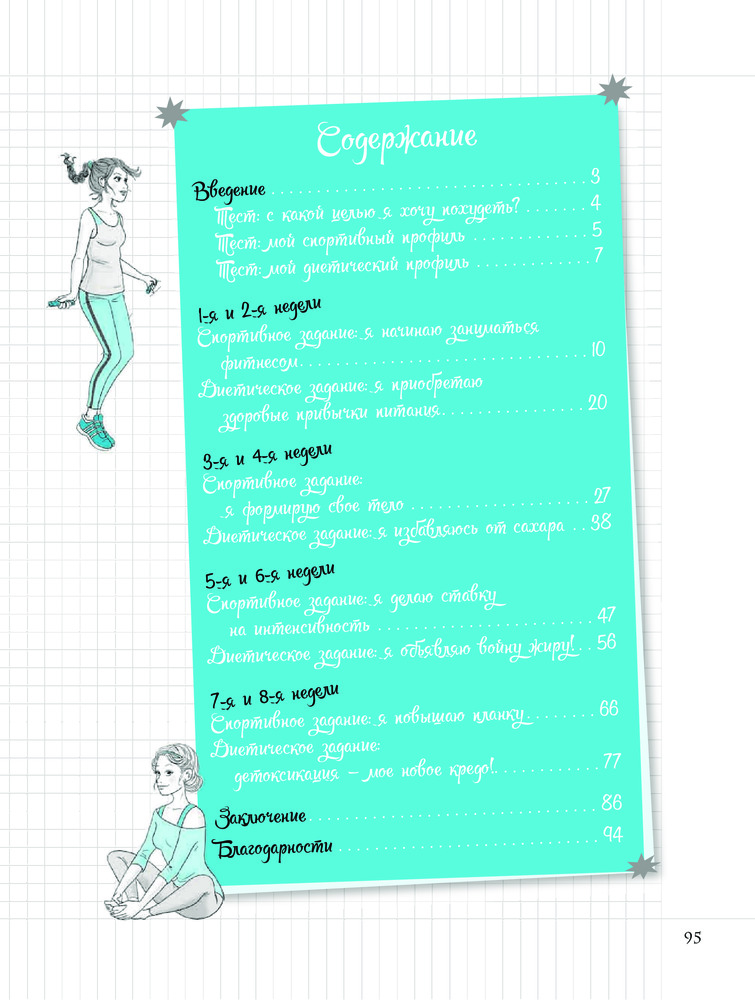 Содержание
Введение . . . . . . . . . . . . . . . . . . . . . . . . . . . . . . . . . . . 3
Тест: с какой целью я хочу похудеть? . . . . . . . 4
Тест: мой спортивный профиль . . . . . . . . . . . . . 5
Тест: мой диетический профиль . . . . . . . . . . . . . 7
1-я и 2-я недели
Спортивное задание: я начинаю заниматься
фитнесом. . . . . . . . . . . . . . . . . . . . . . . . . . . . . . . . 10
Диетическое задание: я приобретаю
здоровые привычки питания. . . . . . . . . . . . . . . . 20
3-я и 4-я недели
Спортивное задание:
я формирую свое тело . . . . . . . . . . . . . . . . . . . . 27
Диетическое задание: я избавляюсь от сахара . . 38
5-я и 6-я недели
Спортивное задание: я делаю ставку
на интенсивность . . . . . . . . . . . . . . . . . . . . . . . . 47
Диетическое задание: я объявляю войну жиру!. . . 56
7-я и 8-я недели
Спортивное задание: я повышаю планку. . . . . . . . 66
Диетическое задание:
детоксикация – мое новое кредо!. . . . . . . . . . . . 77
Заключение . . . . . . . . . . . . . . . . . . . . . . . . . . . . . . . . 86
Благодарности . . . . . . . . . . . . . . . . . . . . . . . . . . . . . 94
95